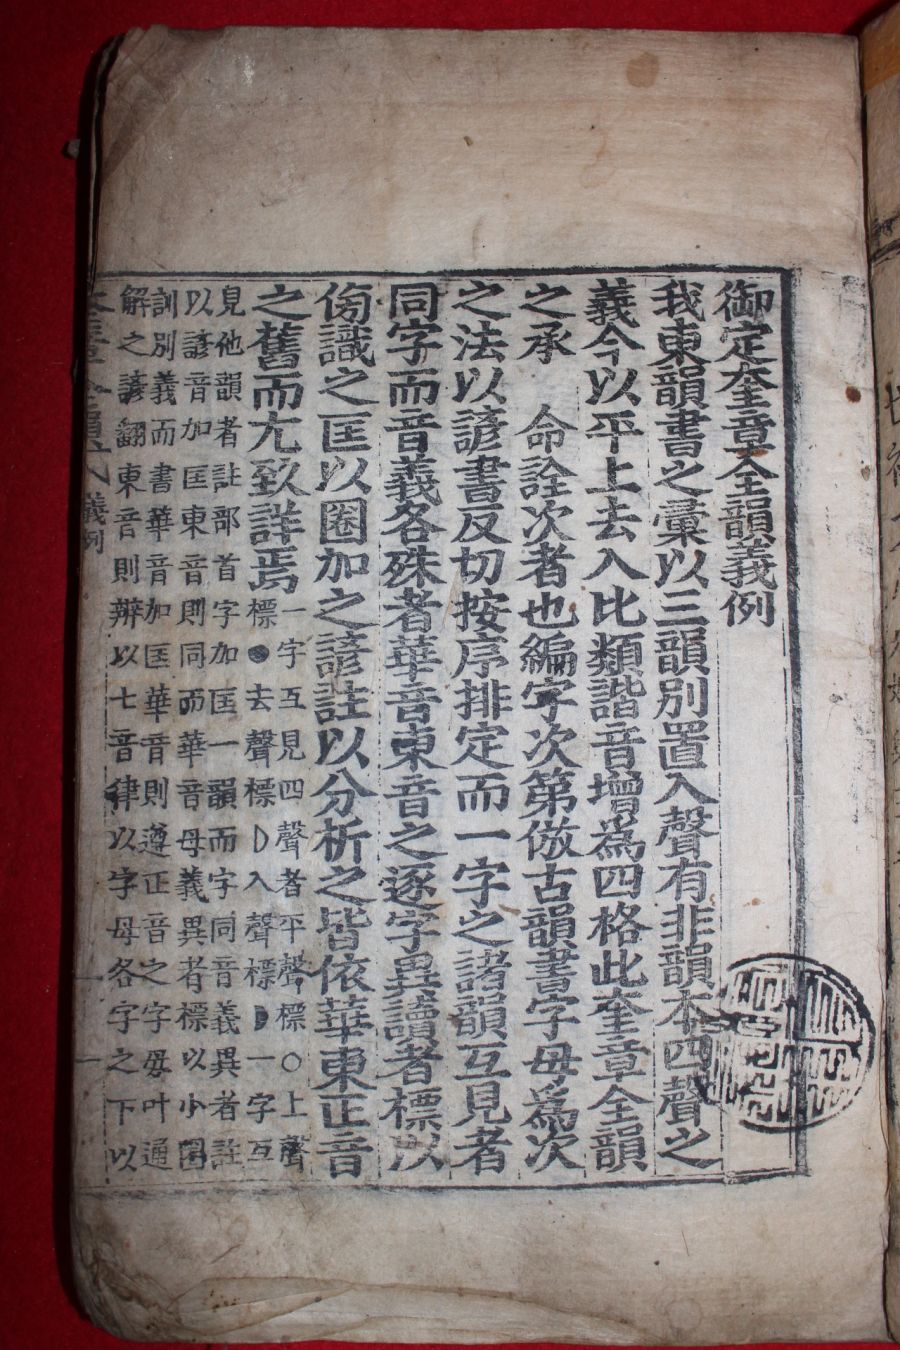 御定奎章全韻義例
我東韻書之彙以三韻別置入聲有非韻本四聲之
義今以平上去入比類諧音增爲四格此奎章全韻
之承　命詮次者也編字次第倣古韻書字母爲次
之法以諺書反切按序排定而一字之諸韻互見者
同字而音義各殊者華音東音之逐字異讀者標以
傍識之匡以圈加之諺註以分析之皆依華東正音
之舊而尤致詳焉
一字互見四聲者平聲標○上聲
標●去聲標D入聲標◗一字互
見他韻者註部首字加匡一韻而字同音義異者註
以諺音加匡東音則同而華音母義異者標以小圈
訓別義而書華音加匡華音則遵正音之字母叶通
解之諺翻東音則辨以七音律以字母各字之下以
義例　一